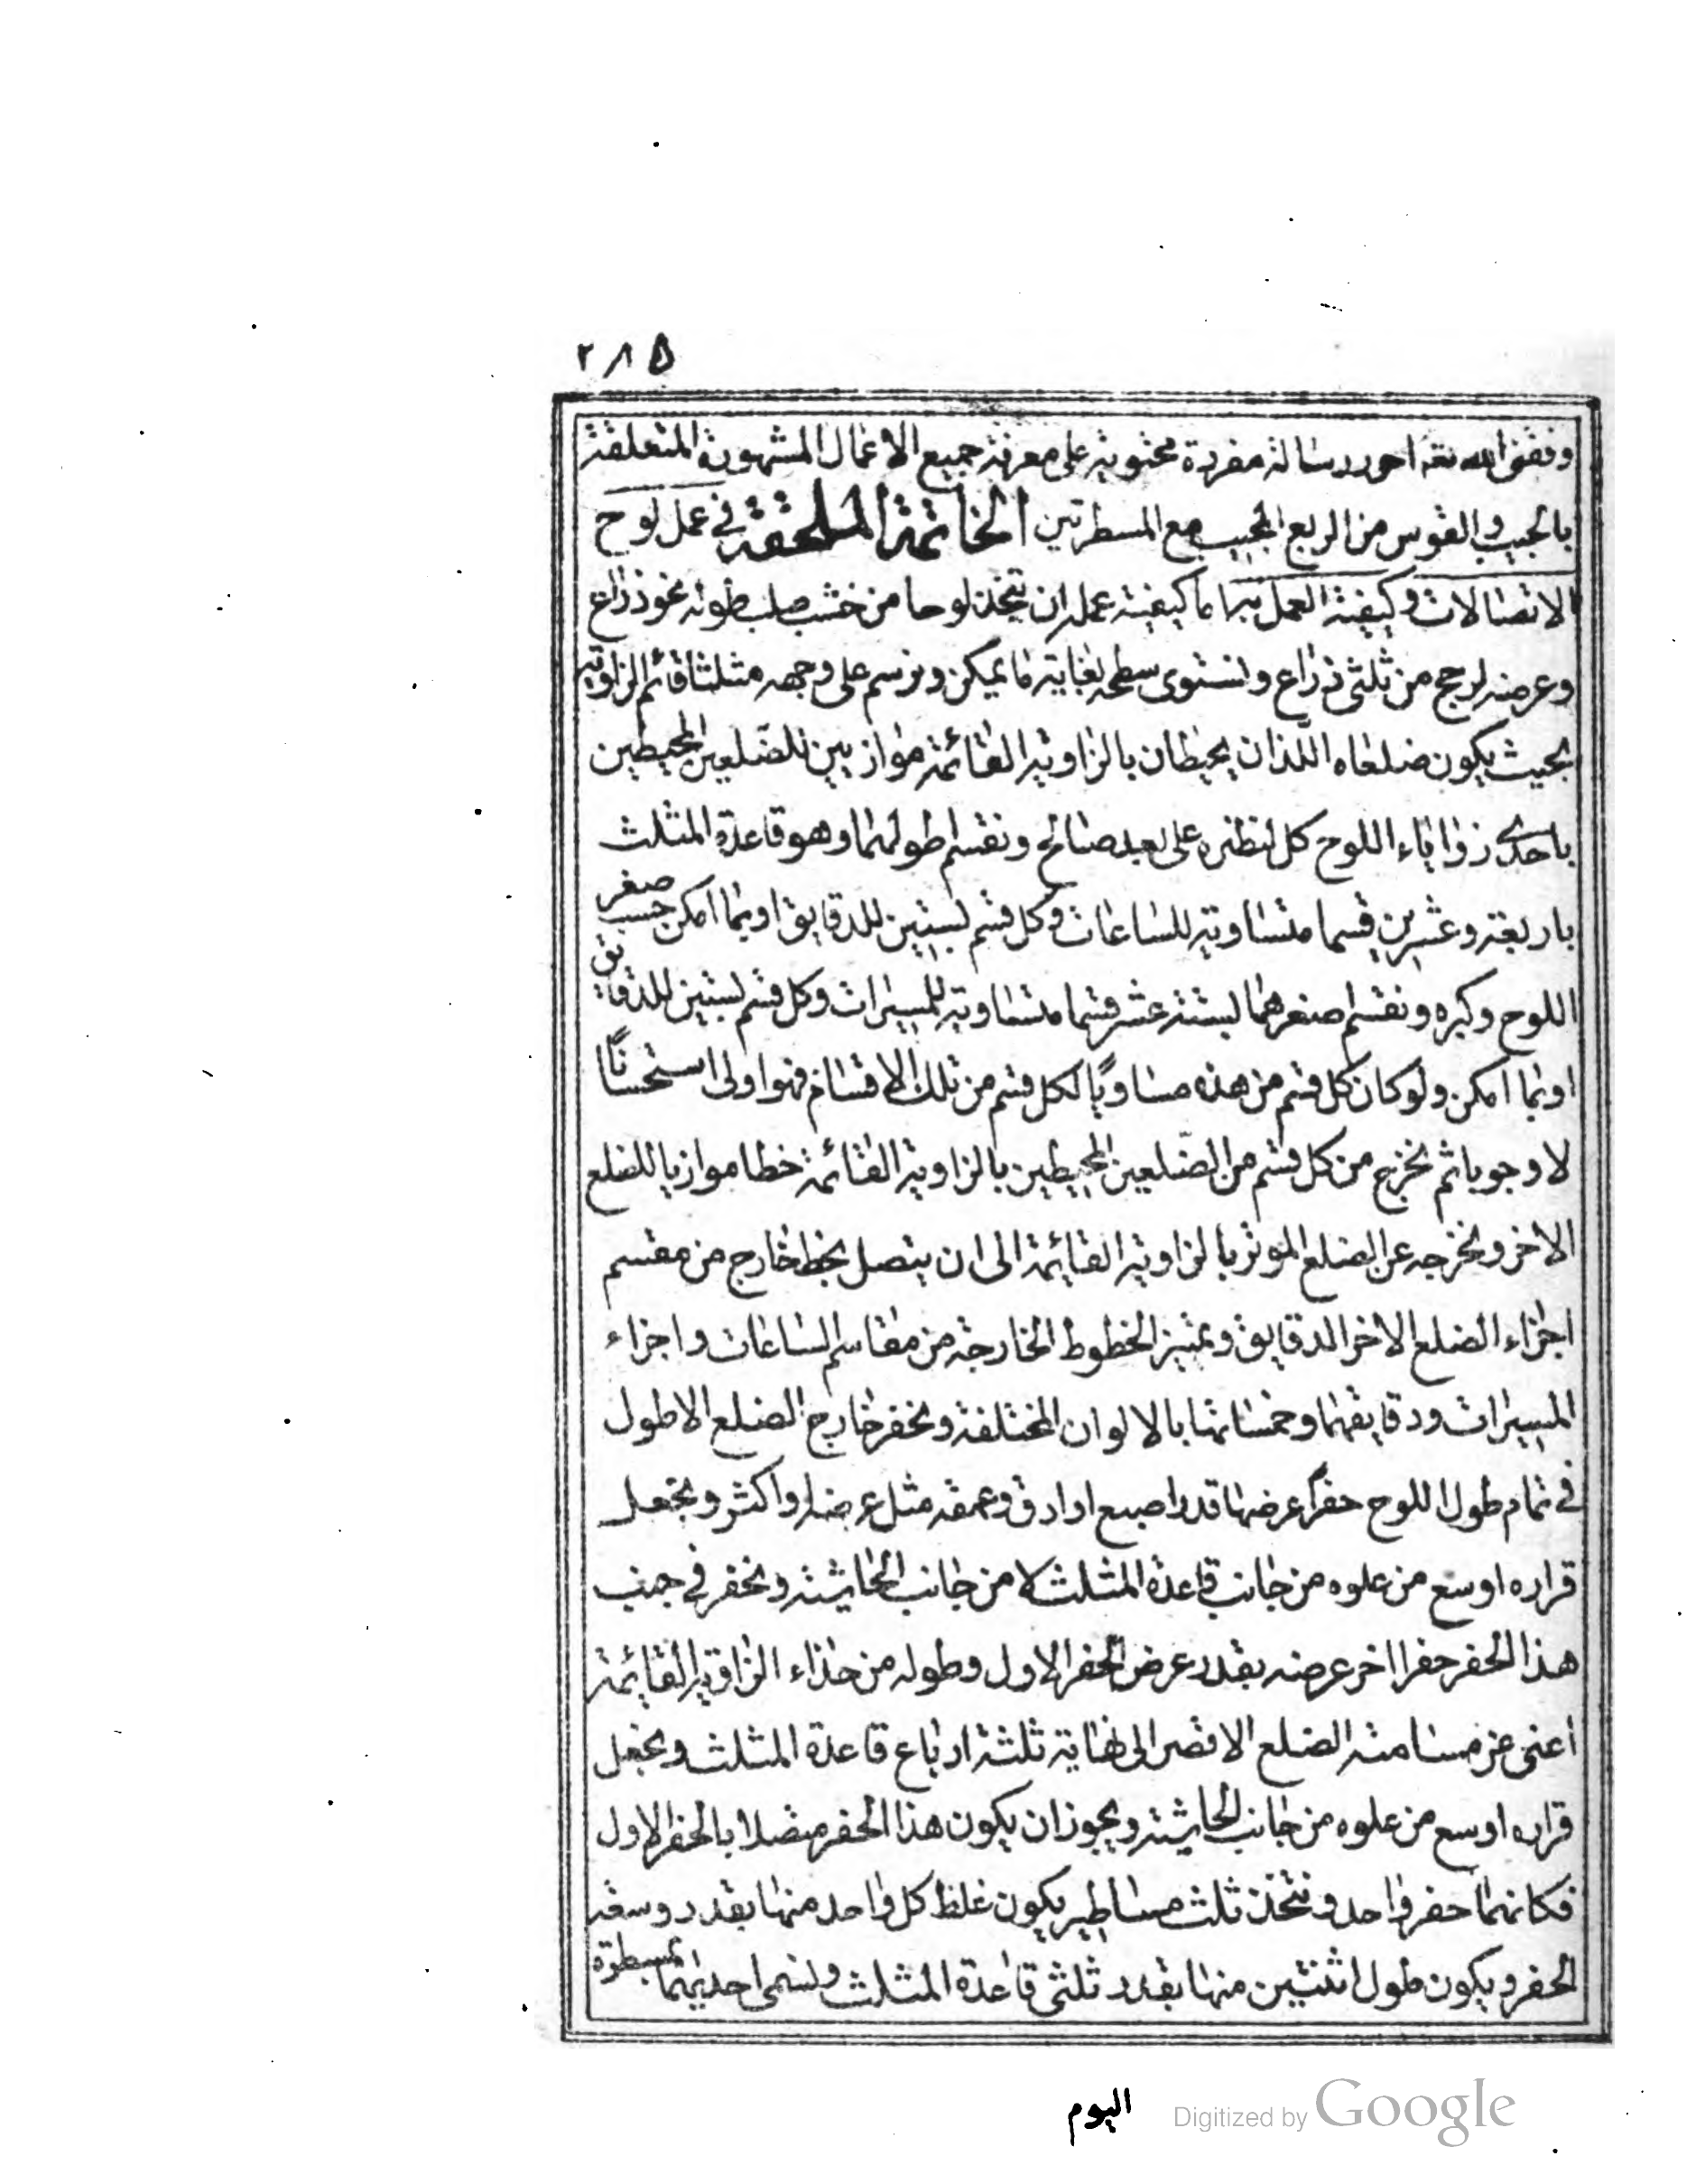 ٢٨٥
وفقنى الله تعه احرر رسالة مفردة محتوية على معرفة جميع الاعمال المشهورة المتعلقة
بالجيب والقوس من الربع المجيب مع المسطرتين الخاتمة الملحقة في عمل لوح
الاتصالات وكيفية العمل بها اما كيفية عمله ان نتخذ لوحا من خشب صلب طوله نحو ذراع
وعرضه ارجح من ثلثى ذراع ونستوى سطحه بغاية ما يمكن ونرسم على وجهه مثلثا قائم الزاوية
بحيث يكون ضلعاه اللذان يحيطان بالزاوية القائمة موازيين للضلعين المحيطين
باحدى زواياء اللوح كل لنظيره على بعد صالح ونقسم اطولهما وهو قاعدة المثلث
باربعة وعشرين قسما متساوية للساعات وكل قسم بستين للدقايق او بما امكن حسب صغر
اللوح وكبره ونقسم اصغرهما بستة عشر قسما متساوية للمسيرات وكل قسم بستين للدقايق
او بما امكن ولو كان كل قسم من هذه مساويًا لكل قسم من تلك الاقسام فهو اولى استحسانًا
لا وجوبا ثم نخرج من كل قسم من الضلعين المحيطين بالزاوية القائمة خطا موازيا للضلع
الاخر ونخرجه عن الضلع الموتر بالزاوية القايمة الى ان يتصل بخط خارج من مقسم
اجزاء الضلع الاخر الدقايق ونميز الخطوط الخارجة من مقاسم الساعات واجزاء
المسيرات ودقايقهما وخمساتها بالالوان المختلفة ونحفر خارج الضلع الاطول
في تمام طول اللوح حفرًا عرضها قدر اصبع او ادق وعمقه مثل عرضه او اكثر ونجعل
قراره اوسع من علوه من جانب قاعدة المثلث لا من جانب الحاشية ونحفر في جنب
هذا الحفر حفرا اخر عرضه بقدر عرض الحفر الاول وطوله من حذاء الزاوية القايمة
اعنى من مسامتة الضلع الاقصر الى نهاية ثلثة ارباع قاعدة المثلث ونجعل
قراره اوسع من علوه من جانب الحاشية ويجوز ان يكون هذا الحفر متصلا بالحفر الاول
فكانهما حفر واحد ونتخذ ثلث مساطير يكون غلظ كل واحد منها بقدر وسعة
الحفر ويكون طول اثنتين منها بقدر ثلثى قاعدة المثلث ونسمى احديهما بمسطرة
اليوم
Digitized by Google